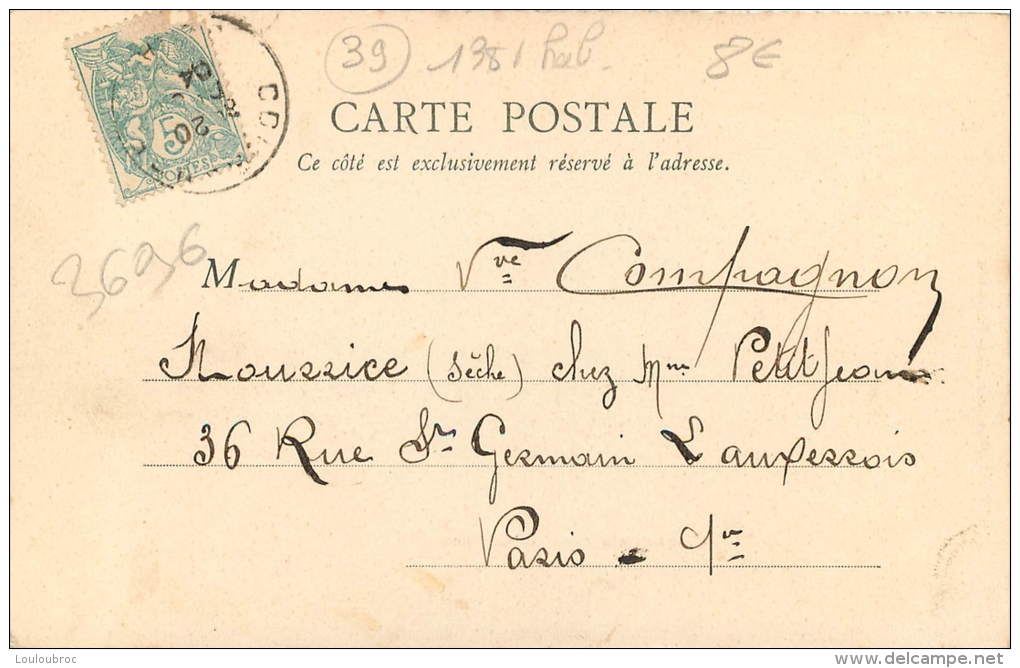 39 1381 hab. 8€
CARTE POSTALE
Ce côté est exclusivement réservé à l'adresse.
3696
Madame Vve Compagnon
Nourrice (sèche) chez Mme Petitjean
36 Rue St Germain Lauxerrois
Paris - 1er
5
Louloubroc
www.delcampe.net